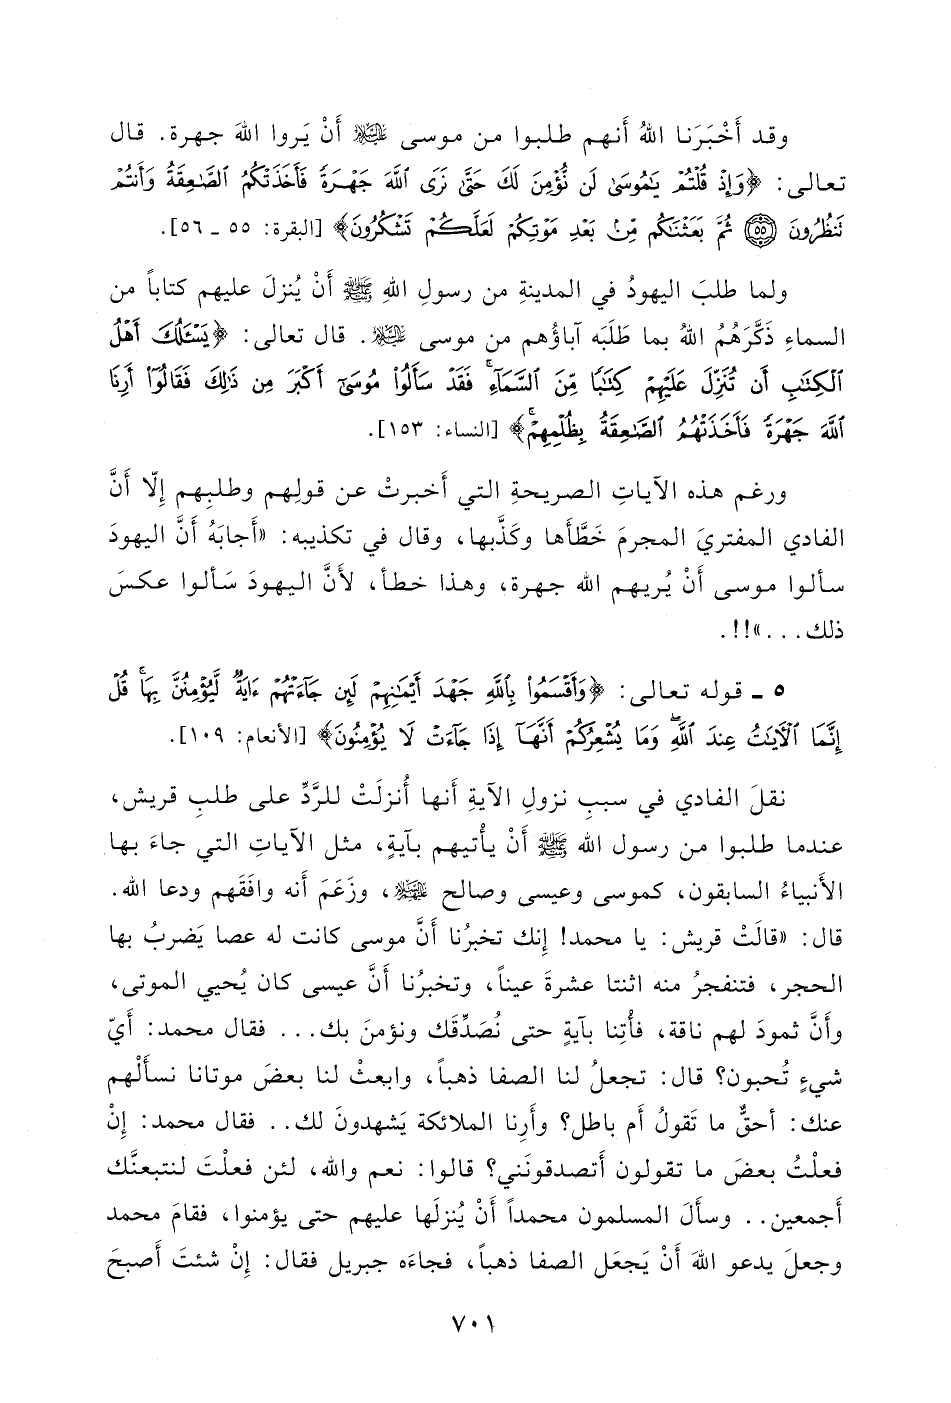 وقد أَخْبَرَنا اللهُ أَنهم طلبوا من موسى ﵇ أَنْ يَروا اللهَ جهرة. قال
تعالى: ﴿وَإِذْ قُلْتُمْ يَٰمُوسَىٰ لَن نُّؤْمِنَ لَكَ حَتَّىٰ نَرَى ٱللَّهَ جَهْرَةً فَأَخَذَتْكُمُ ٱلصَّٰعِقَةُ وَأَنتُمْ
تَنظُرُونَ ۝٥٥ ثُمَّ بَعَثْنَٰكُم مِّنۢ بَعْدِ مَوْتِكُمْ لَعَلَّكُمْ تَشْكُرُونَ﴾ [البقرة: ٥٥ ـ ٥٦].
ولما طلبَ اليهودُ في المدينةِ من رسولِ اللهِ ﷺ أَنْ يُنزلَ عليهم كتاباً من
السماءِ ذَكَّرَهُمُ اللهُ بما طَلَبَه آباؤُهم من موسى ﵇. قال تعالى: ﴿يَسْـَٔلُكَ أَهْلُ
ٱلْكِتَٰبِ أَن تُنَزِّلَ عَلَيْهِمْ كِتَٰبًا مِّنَ ٱلسَّمَآءِ ۚ فَقَدْ سَأَلُوا۟ مُوسَىٰٓ أَكْبَرَ مِن ذَٰلِكَ فَقَالُوٓا۟ أَرِنَا
ٱللَّهَ جَهْرَةً فَأَخَذَتْهُمُ ٱلصَّٰعِقَةُ بِظُلْمِهِمْ ۚ﴾ [النساء: ١٥٣].
ورغم هذه الآياتِ الصريحةِ التي أَخبرتْ عن قولِهم وطلبِهم إِلّا أَنَّ
الفادي المفتريَ المجرمَ خَطَّأَها وكَذَّبها، وقال في تكذيبه: «أَجابَهُ أَنَّ اليهودَ
سألوا موسى أَنْ يُريهم الله جهرة، وهذا خطأ، لأَنَّ اليهودَ سَألوا عكسَ
ذلك...»!!.
٥ ـ قوله تعالى: ﴿وَأَقْسَمُوا۟ بِٱللَّهِ جَهْدَ أَيْمَٰنِهِمْ لَئِن جَآءَتْهُمْ ءَايَةٌ لَّيُؤْمِنُنَّ بِهَا ۚ قُلْ
إِنَّمَا ٱلْءَايَٰتُ عِندَ ٱللَّهِ ۖ وَمَا يُشْعِرُكُمْ أَنَّهَآ إِذَا جَآءَتْ لَا يُؤْمِنُونَ﴾ [الأنعام: ١٠٩].
نقلَ الفادي في سببِ نزولِ الآيةِ أَنها أُنزلَتْ للرَّدِّ على طلبِ قريش،
عندما طلبوا من رسول الله ﷺ أَنْ يأْتيهم بآيةٍ، مثل الآياتِ التي جاءَ بها
الأَنبياءُ السابقون، كموسى وعيسى وصالح ﵈، وزَعَمَ أَنه وافَقَهم ودعا الله.
قال: «قالَتْ قريش: يا محمد! إِنك تخبرُنا أَنَّ موسى كانت له عصا يَضربُ بها
الحجر، فتنفجرُ منه اثنتا عشرةَ عيناً، وتخبرُنا أَنَّ عيسى كان يُحيي الموتى،
وأَنَّ ثمودَ لهم ناقة، فأْتِنا بآيةٍ حتى نُصَدِّقَك ونؤمنَ بك... فقال محمد: أَيّ
شيءٍ تُحبون؟ قال: تجعلُ لنا الصفا ذهباً، وابعثْ لنا بعضَ موتانا نسأَلْهم
عنك: أحقٌّ ما تَقولُ أم باطل؟ وأَرِنا الملائكة يَشهدونَ لك.. فقال محمد: إِنْ
فعلْتُ بعضَ ما تقولون أَتصدقونَني؟ قالوا: نعم والله، لئن فعلْتَ لنتبعنَّك
أَجمعين.. وسأَلَ المسلمون محمداً أَنْ يُنزلَها عليهم حتى يؤمنوا، فقامَ محمد
وجعلَ يدعو اللهَ أَنْ يَجعَل الصفا ذهباً، فجاءَه جبريل فقال: إِنْ شئتَ أَصبحَ
٧٠١